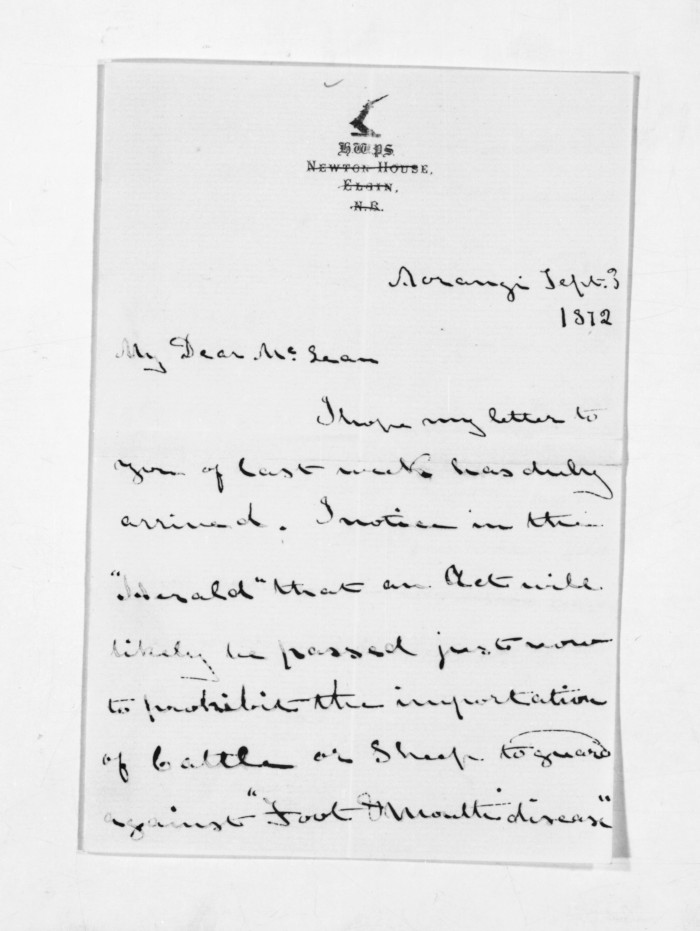 H.W.P.S.
NEWTON HOUSE,
ELGIN,
N.B.
Aorangi Sept. 3
1872
My Dear McLean
I hope my letter to
you of last week has duly
arrived. I notice in the
"Herald" that an Act will
likely be passed just now
to prohibit the importation
of Cattle or Sheep to guard
against "Foot & Mouth disease"